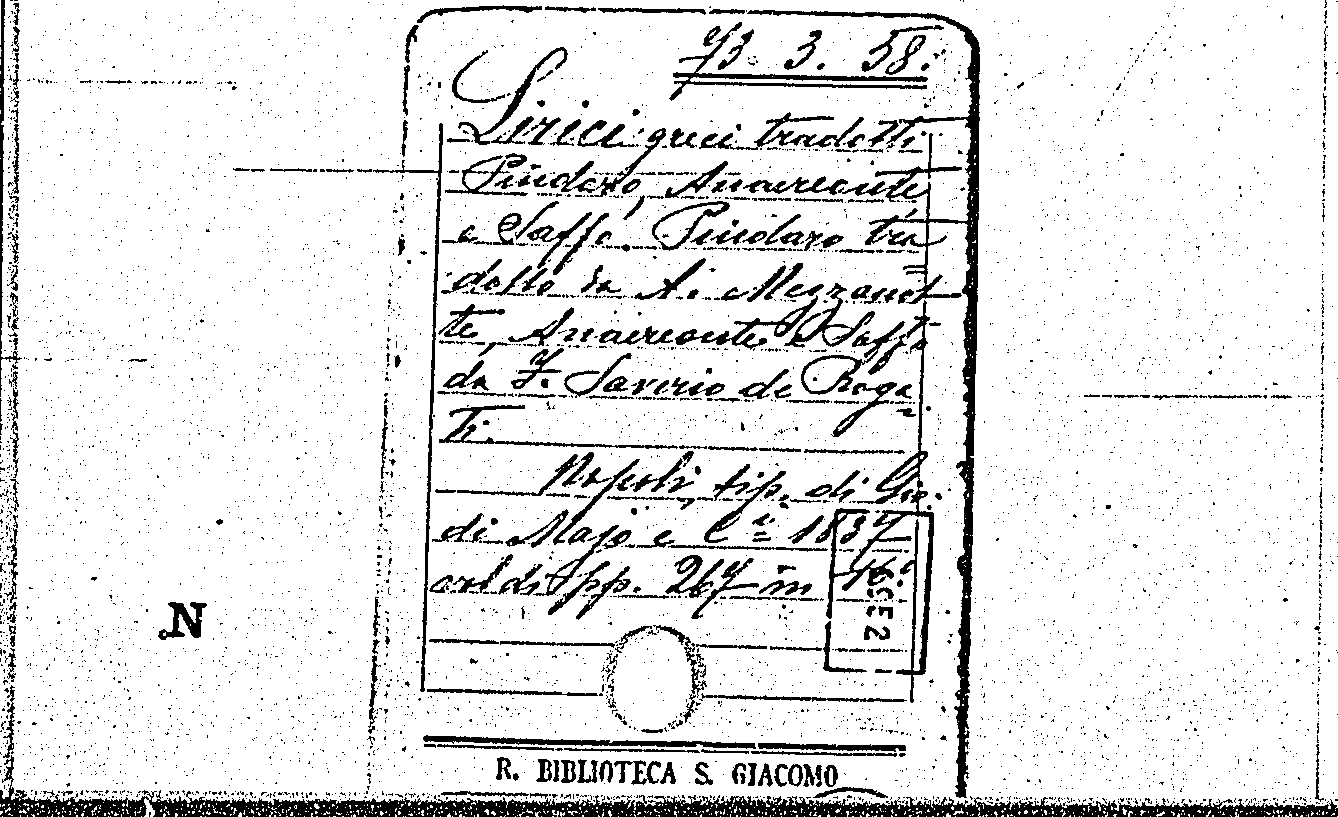 73. 3. 58.
Lirici greci tradotti
Pindaro, Anacreonte
e Saffo. Pindaro tra
dotto da A. Mezzanot
te, Anacreonte e Saffo
da F. Saverio de Roga
ti.
Napoli, tip. di Gio.
di Majo e C.i 1837
vol di pp. 267 in 16º
N
R. BIBLIOTECA S. GIACOMO